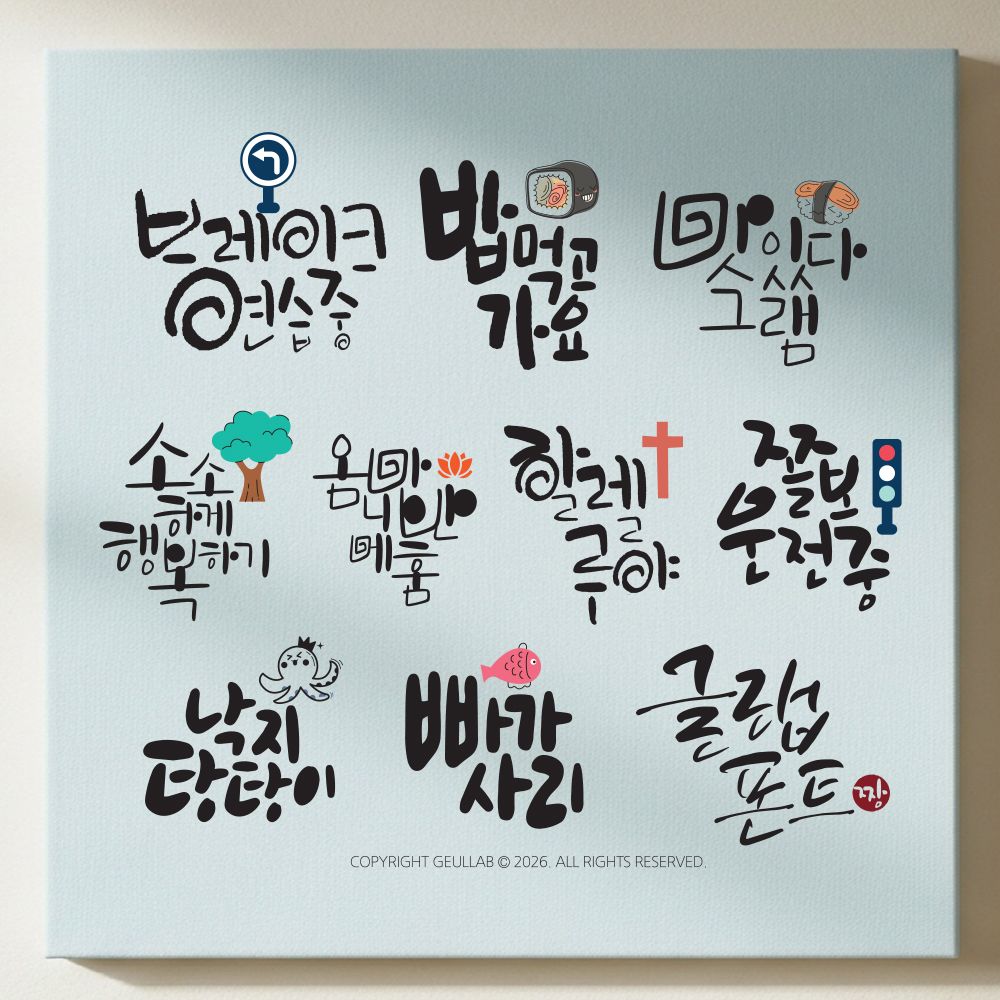 브레이크
연습중
밥먹고
가요
맛있다
그램
소소
하게
행복하기
옴마
니반
메훔
할렐
루야
쫄보
운전중
낙지
탕탕이
빠가
사리
글랩
폰트
짱
COPYRIGHT GEULLAB © 2026. ALL RIGHTS RESERVED.